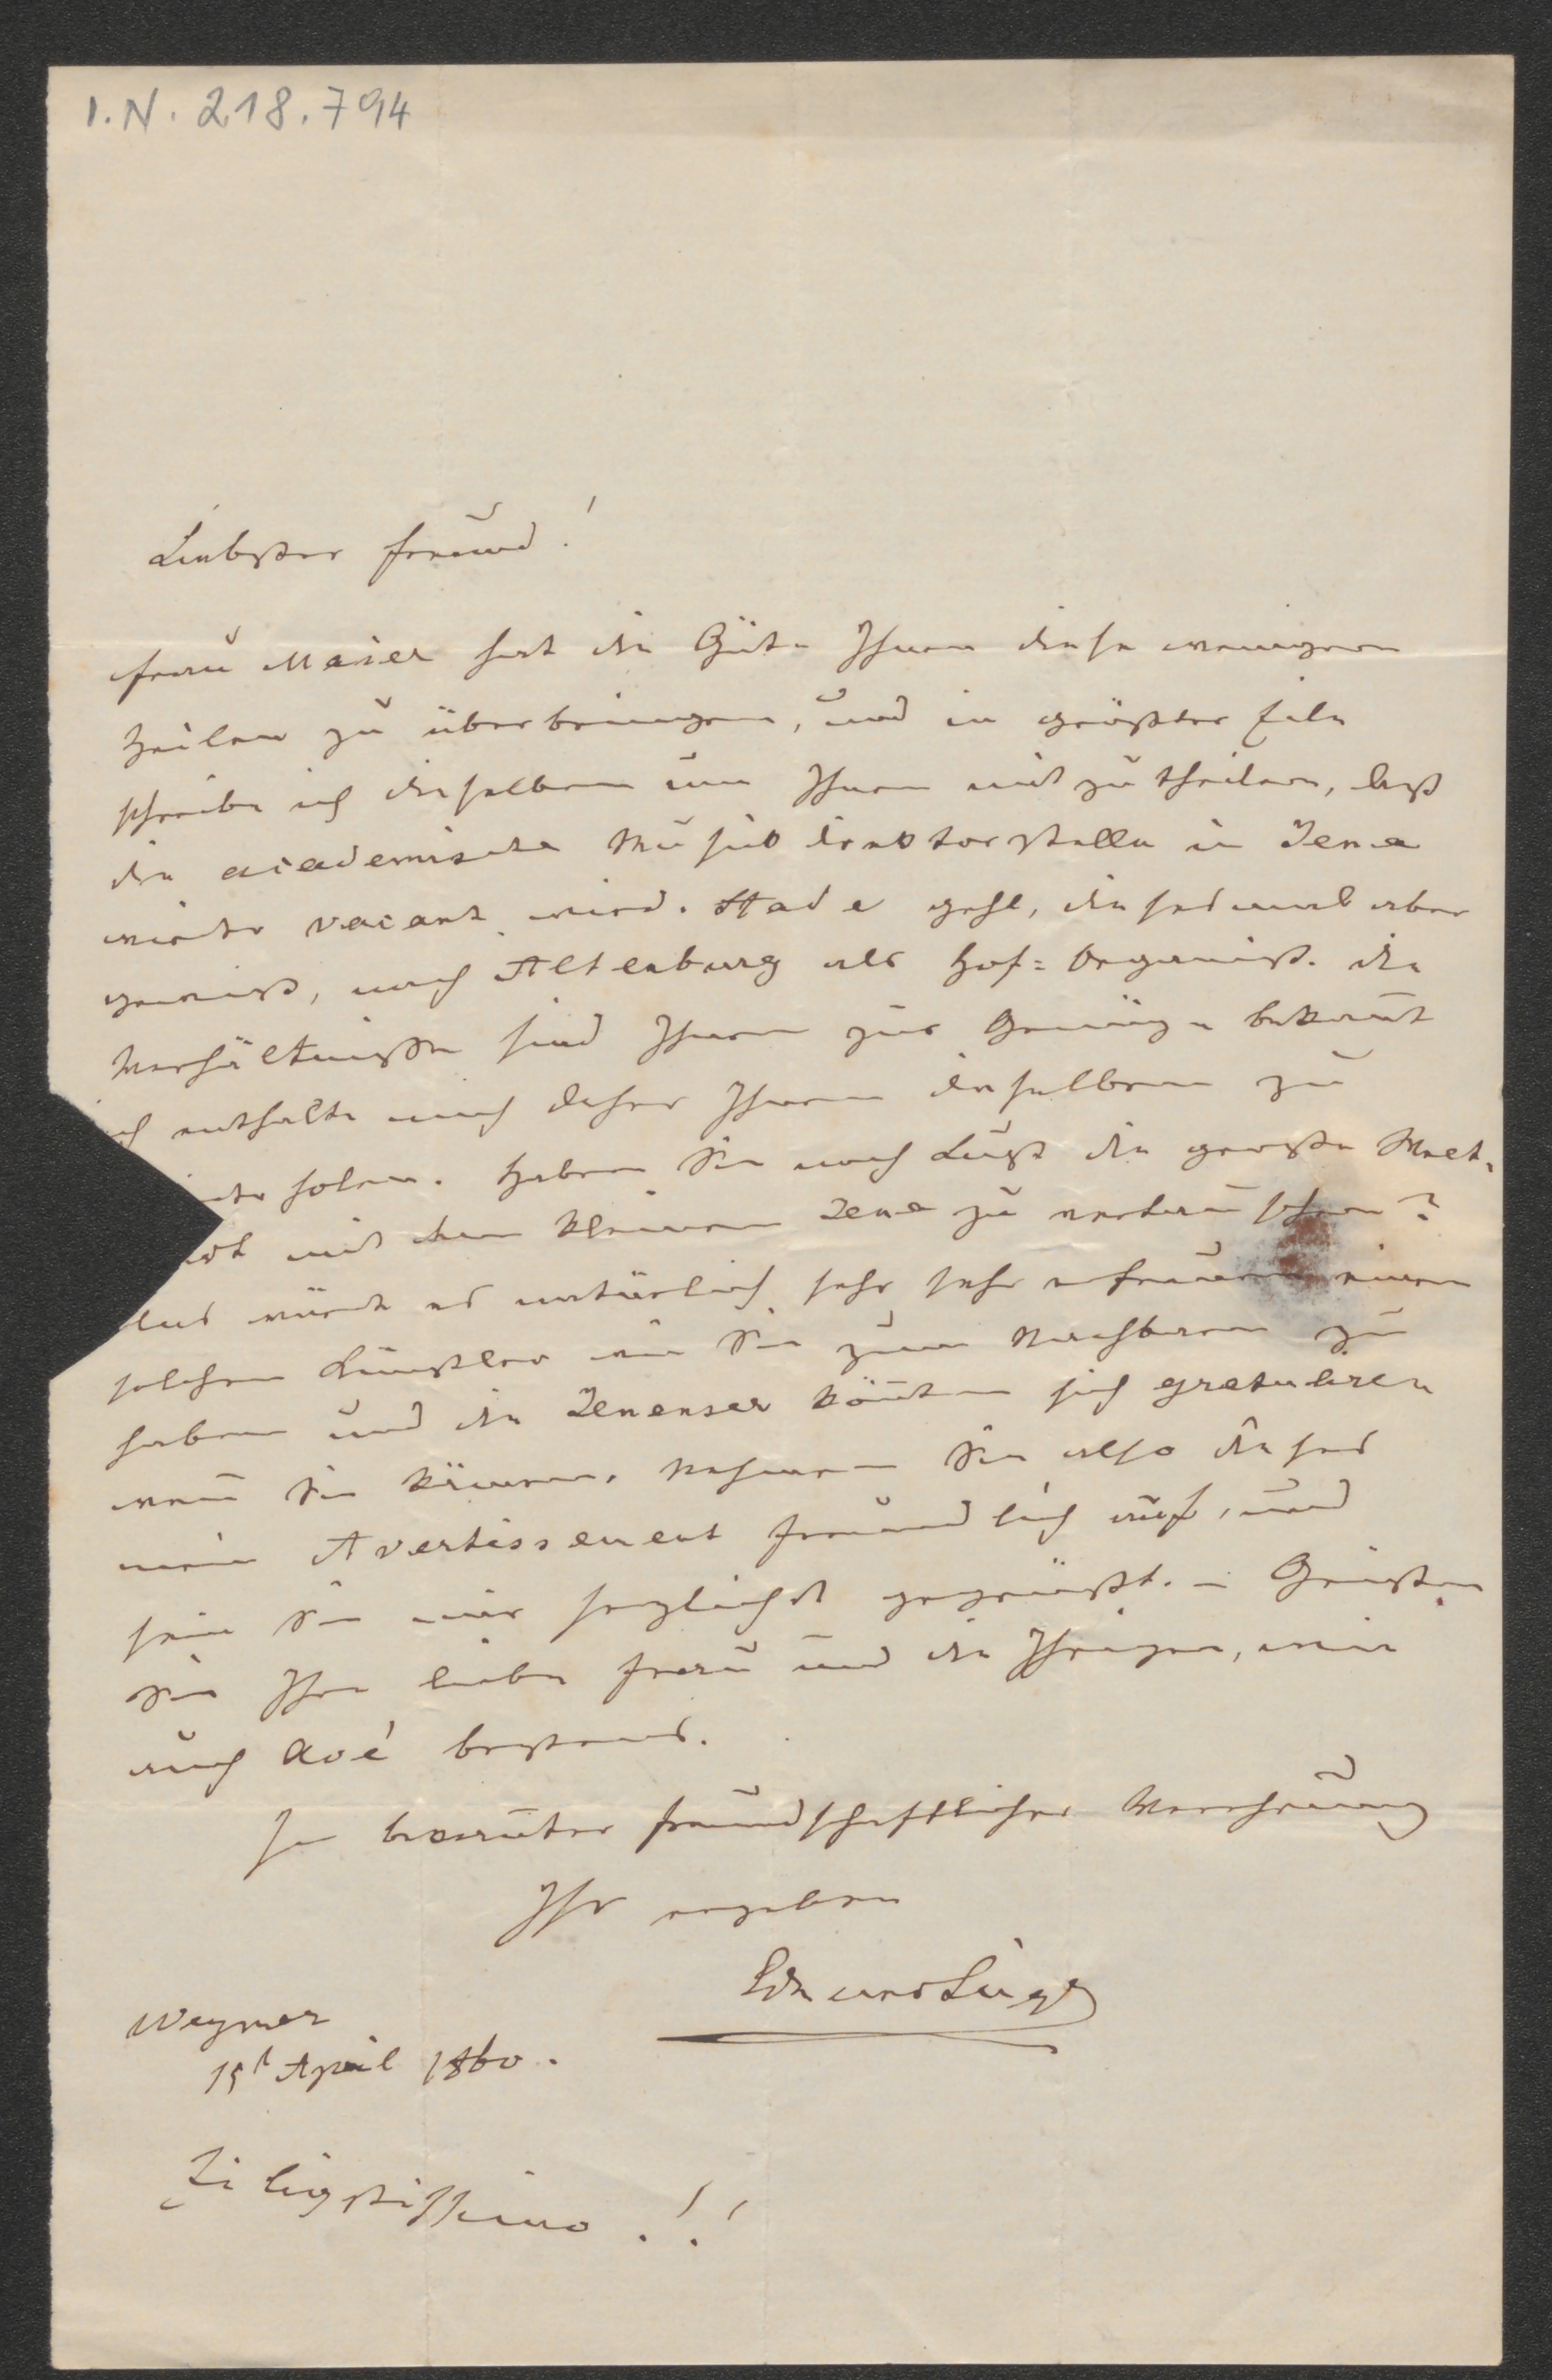 I.N. 218.794
Liebster Freund!
Frau Maier hat die Güte Ihnen diese wenigen
Zeilen zu überbringen, und in größter Eile
schreibe ich dieselben um Ihnen mitzutheilen, daß
die academische Musikdirektorstelle in Jena
wieder vacant wird. Stade geht, diesesmal aber
gewiß, nach Altenburg als Hof=Organist. Die
Verhältniße sind Ihnen zur Genüge bekannt
ich enthalte mich daher Ihnen dieselben zu
holen. Haben Sie noch Lust die große Welt-
mit dem kleinen Jena zu vertauschen?
würde es natürlich sehr sehr erfreuen einen
solchen Künstler wie Sie zum Nachbaren zu
haben und die Jenenser könnten sich gratuliren
wenn Sie kämen. Nehmen Sie also dieses
mein Avertissement freundlich auf, und
sein Sie mir herzlichst gegrüßt. – Grüßen
Sie Ihre liebe Frau und die Ihrigen, wie
auch Avé bestens.
In bekannter freundschaftlicher Verehrung
Ihr ergeben
Edmund Singer
Weymar
15t April 1860.
Eiligstissimo!!